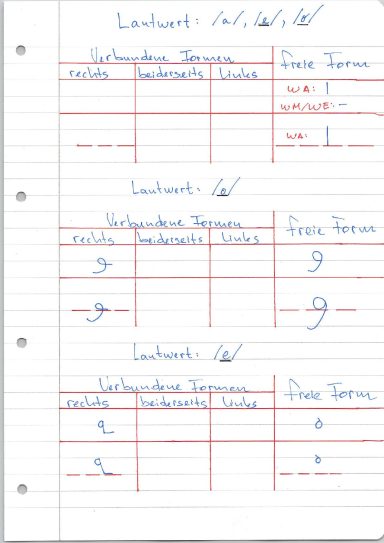 Lautwert: /a/, /e/, /o/
Verbundene Formen
freie Form
rechts beiderseits links
WA: |
WM/WE: –
WA: |
Lautwert: /o/
Verbundene Formen
freie Form
rechts beiderseits links
Lautwert: /e/
Verbundene Formen
freie Form
rechts beiderseits links